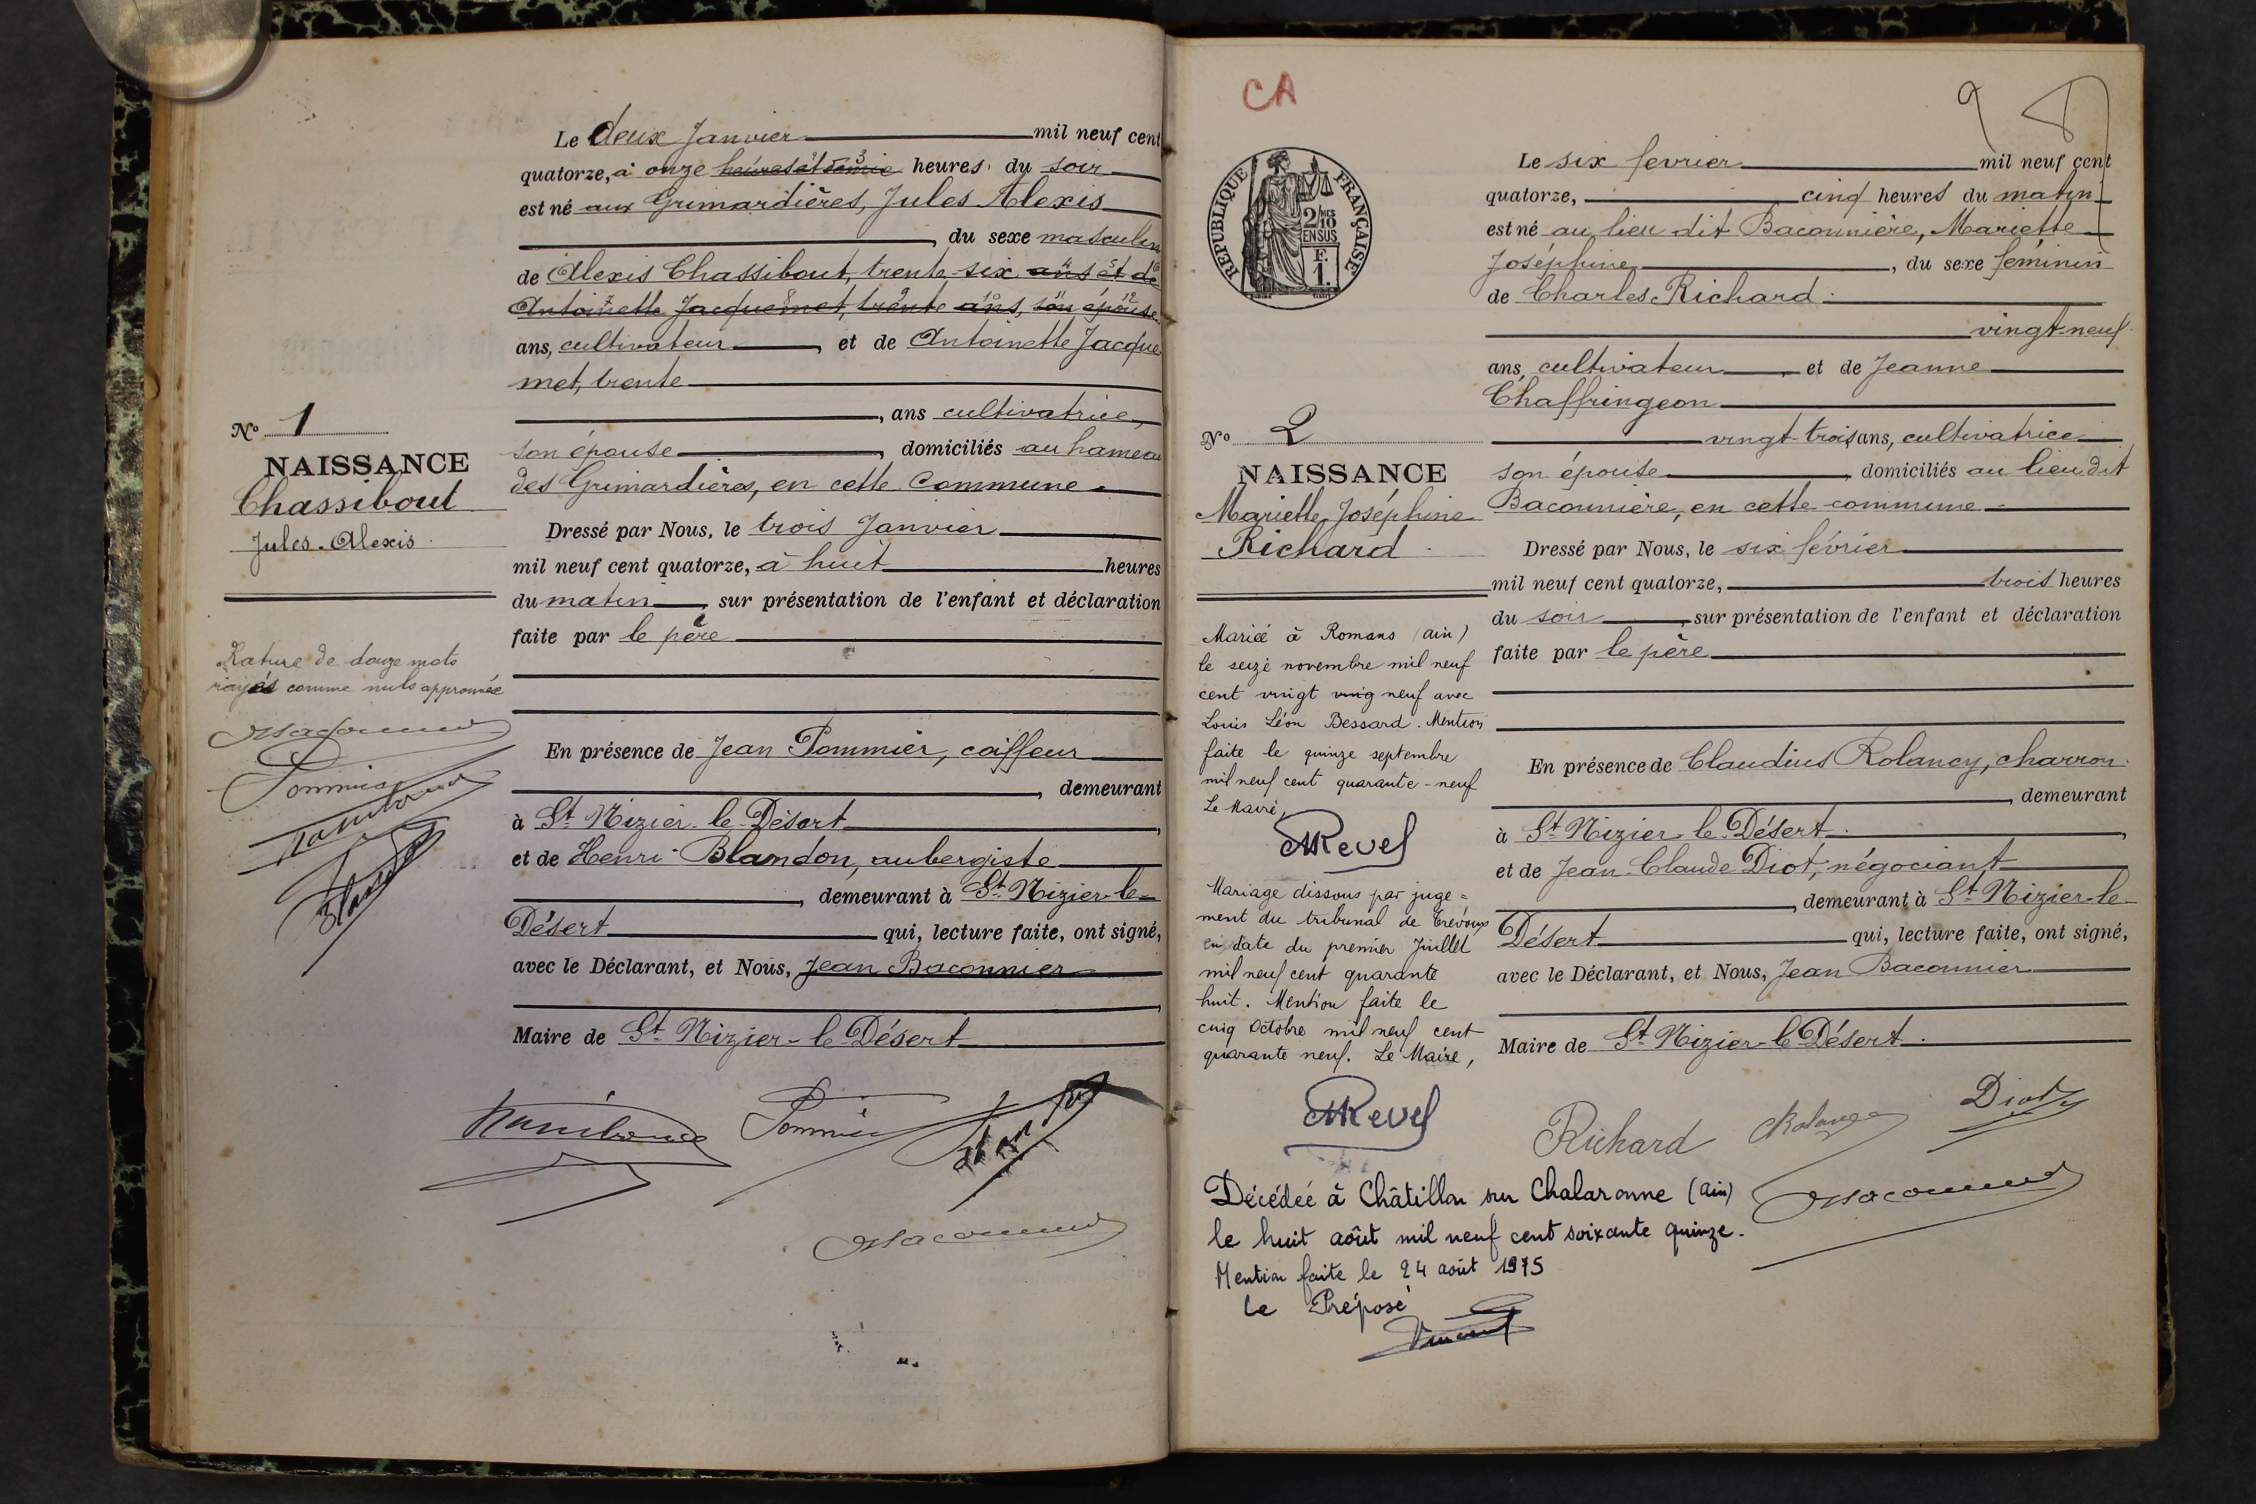 Le deux Janvier mil neuf cent
quatorze, à onze heures et demie heures du soir
est né aux Grimardières, Jules Alexis
, du sexe masculin
de Alexis Chassibout, trente-six ans et de
Antoinette Jacquemet, trente ans, son épouse
ans, cultivateur, et de Antoinette Jacque
met, trente
, ans cultivatrice,
son épouse, domiciliés au hameau
des Grimardières, en cette Commune.
Dressé par Nous, le trois Janvier
mil neuf cent quatorze, à huit heures
du matin, sur présentation de l'enfant et déclaration
faite par le père
En présence de Jean Pommier, coiffeur
, demeurant
à St Nizier-le-Désert,
et de Henri Blandon, aubergiste
, demeurant à St Nizier-le-
Désert qui, lecture faite, ont signé,
avec le Déclarant, et Nous, Jean Baconnier
Maire de St Nizier-le-Désert
Nº 1
NAISSANCE
Chassibout
Jules-Alexis
Rature de douze mots
rayés comme nuls approuvée
Pommier
Pommier
CA
9
RÉPUBLIQUE FRANÇAISE
2/10 MES
EN SUS
F.
1.
Le six fevrier mil neuf cent
quatorze, cinq heures du matin
est né au lieu dit Baconnière, Mariette
Joséphine, du sexe féminin
de Charles Richard
vingt-neuf
ans, cultivateur, et de Jeanne
Chaffringeon
vingt-trois ans, cultivatrice
son épouse, domiciliés au lieu dit
Baconnière, en cette commune
Dressé par Nous, le six février
mil neuf cent quatorze, trois heures
du soir, sur présentation de l'enfant et déclaration
faite par le père
En présence de Claudius Rolancy, charron
, demeurant
à St Nizier-le-Désert,
et de Jean-Claude Diot, négociant
, demeurant à St Nizier-le-
Désert qui, lecture faite, ont signé,
avec le Déclarant, et Nous, Jean Baconnier
Maire de St Nizier-le-Désert
Nº 2
NAISSANCE
Mariette Joséphine
Richard
Mariée à Romans (Ain)
le seize novembre mil neuf
cent vingt ving neuf avec
Louis Léon Bessard. Mention
faite le quinze septembre
mil neuf cent quarante-neuf
Le Maire,
Revel
Mariage dissous par juge=
ment du tribunal de Trévoux
en date du premier Juillet
mil neuf cent quarante
huit. Mention faite le
cinq Octobre mil neuf cent
quarante neuf. Le Maire,
Revel
Richard
Diot
Décédée à Châtillon sur Chalaronne (Ain)
le huit août mil neuf cent soixante quinze.
Mention faite le 24 août 1975
Le Préposé